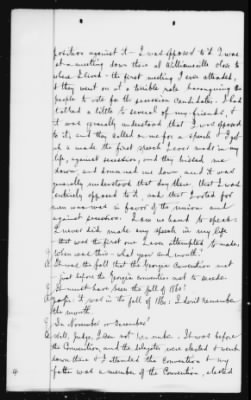 position against it — I was opposed to it. I was
at a meeting down there at Williamsville close to
where I lived — the first meeting I ever attended,
& they went on at a terrible rate haranguing the
people to vote for the secession candidates. I had
talked a little to several of my friends, &
it was generally understood that I was opposed
to it; and they called on me for a speech & I got
up & made the first speech I ever made in my
life, against secession, and they hissed me
down and hammered me down and it was
generally understood that day there that I was
entirely opposed to it and that I voted for
men in favor of the union and
against secession. I am no hand to speak.
I never did make any speech in my life
that was the first one I ever attempted to make.
Q When was this — what year and month?
A It was the fall that the Georgia Convention met
— just before the Georgia convention met to secede.
Q It must have been the fall of 1860?
A Yes sir. it was in the fall of 1860. I don't remember
the month.
Q In November or December?
A Well, Judge, I can not It was before
the Convention, and the delegates were elected & went
down there & I attended the Convention & my
father was a member of the Convention, elected